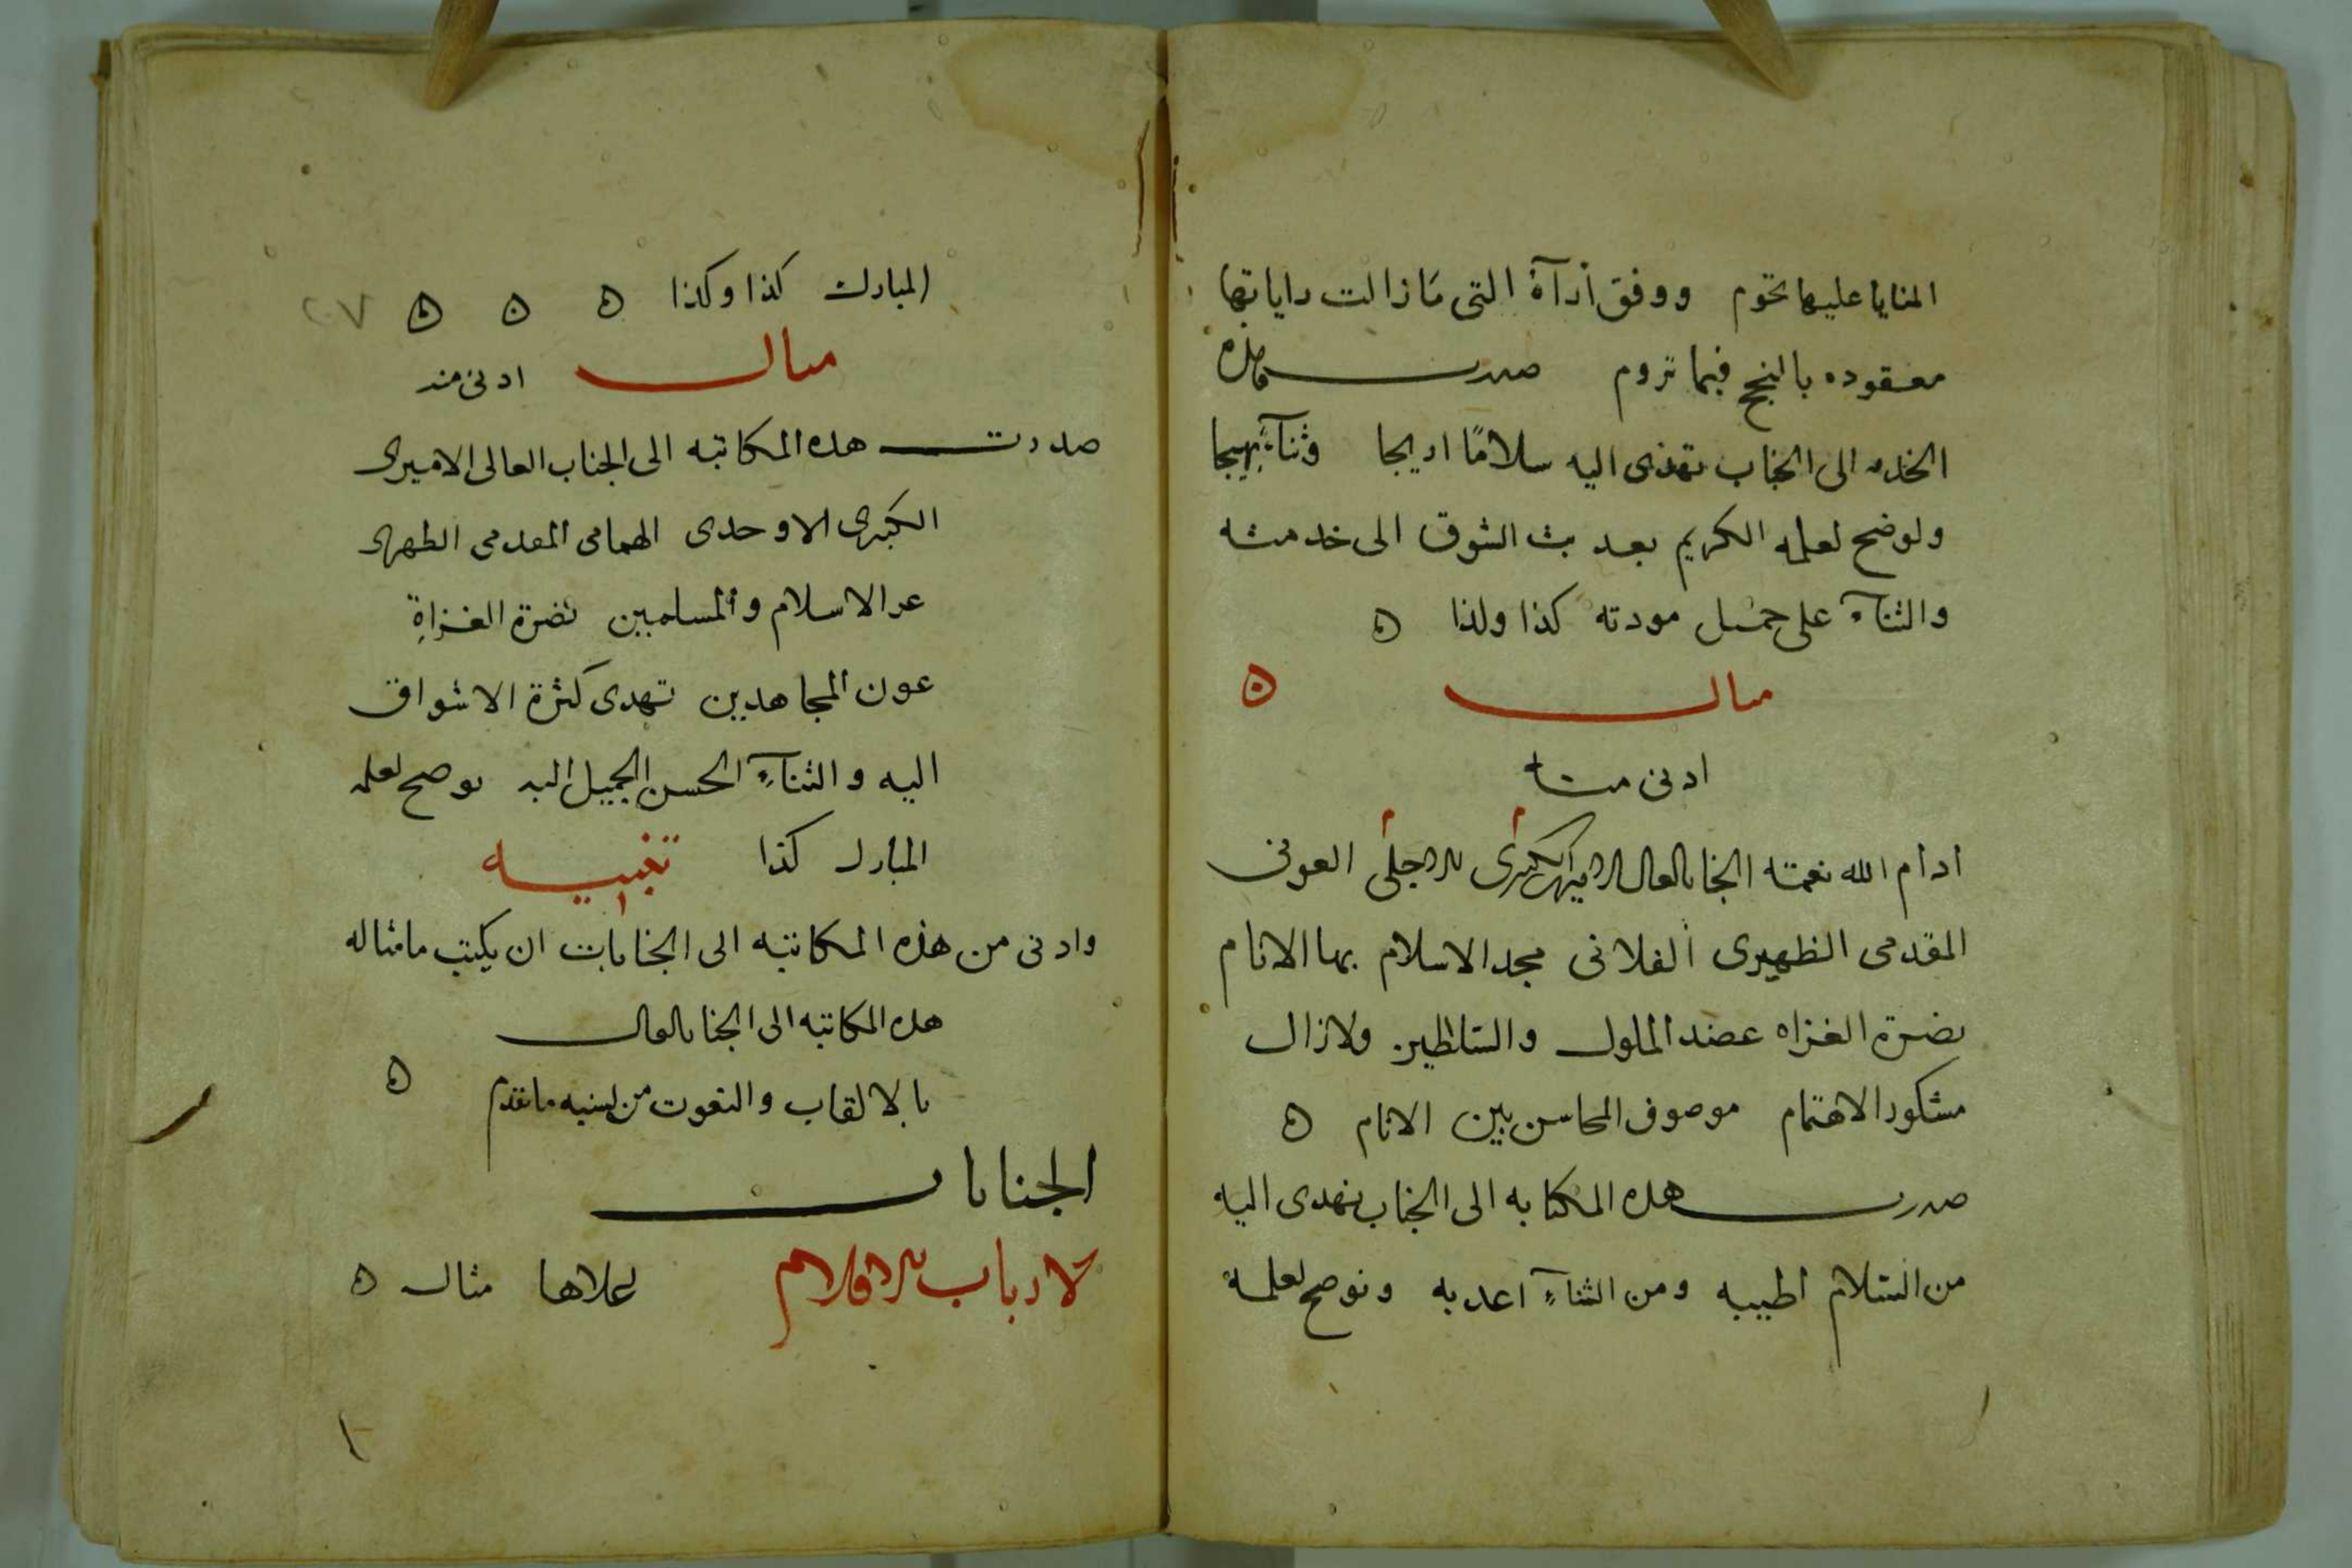 المنايا عليها تحوم ووفق أرآءه التى مَا زالت راياتها
معقوده بالنجح فيما تروم صدرت هذه
الخدمه الى الجناب تهدى اليه سلامًا اريجا وثنآءً بهيجا
ونوضح لعلمه الكريم بعد بث الشوق الى خدمته
والثنآء على جميل مودته كذا وكذا ه
مثال ه
ادنى منه
ادام الله نعمة الجناب العالى الاميرى الكبيرى الاجلى العونى
المقدمى الظهيرى الفلانى مجد الاسلام بها الانام
نصرة الغزاه عضد الملوك والسلاطين ولا زال
مشكور الاهتمام موصوف المحاسن بين الانام ه
صدرت هذه المكاتبه الى الجناب تهدى اليه
من السلام اطيبه ومن الثنآءِ اعذبه ونوضح لعلمه
المبارك كذا وكذا ه ه ه ٢٠٧
مثال ادنى منه
صدرت هذه المكاتبه الى الجناب العالى الاميرى
الكبيرى الاوحدى الهمامى المقدمى الظهيرى
عز الاسلام والمسلمين نصرة الغزاةِ
عون المجاهدين تهدى كثرة الاشواق
اليه والثنآءِ الحسن الجميل اليه نوضح لعلمه
المبارك كذا تنبيه
وادنى من هذه المكاتبه الى الجنابات ان يكتب ما مثاله
هذه المكاتبه الى الجناب العالى
بالالقاب والنعوت من نسبه ما تقدم ه
الجنابات
لارباب الاقلام اعلاها مثال ه